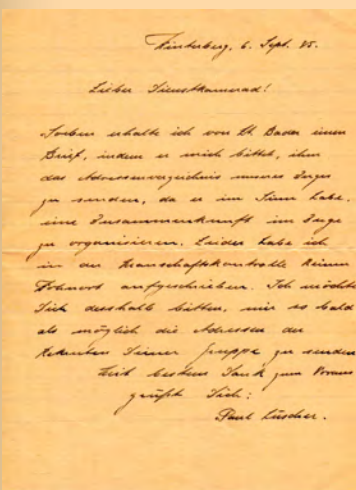 Winterberg, 6. Sept. 45.
Lieber Dienstkamerad!
Soeben erhalte ich von Lt. Bader einen
Brief, indem er mich bittet, ihm
das Adressenverzeichnis unseres Zuges
zu senden, da er im Sinn habe,
eine Zusammenkunft im Zuge
zu organisieren. Leider habe ich
in der Mannschaftskontrolle keinen
Wohnort aufgeschrieben. Ich möchte
Dich desshalb bitten, mir so bald
als möglich die Adressen der
Rekruten Deiner Gruppe zu senden.
Mit bestem Dank zum Voraus
grüsst Dich:
Paul Lüscher.